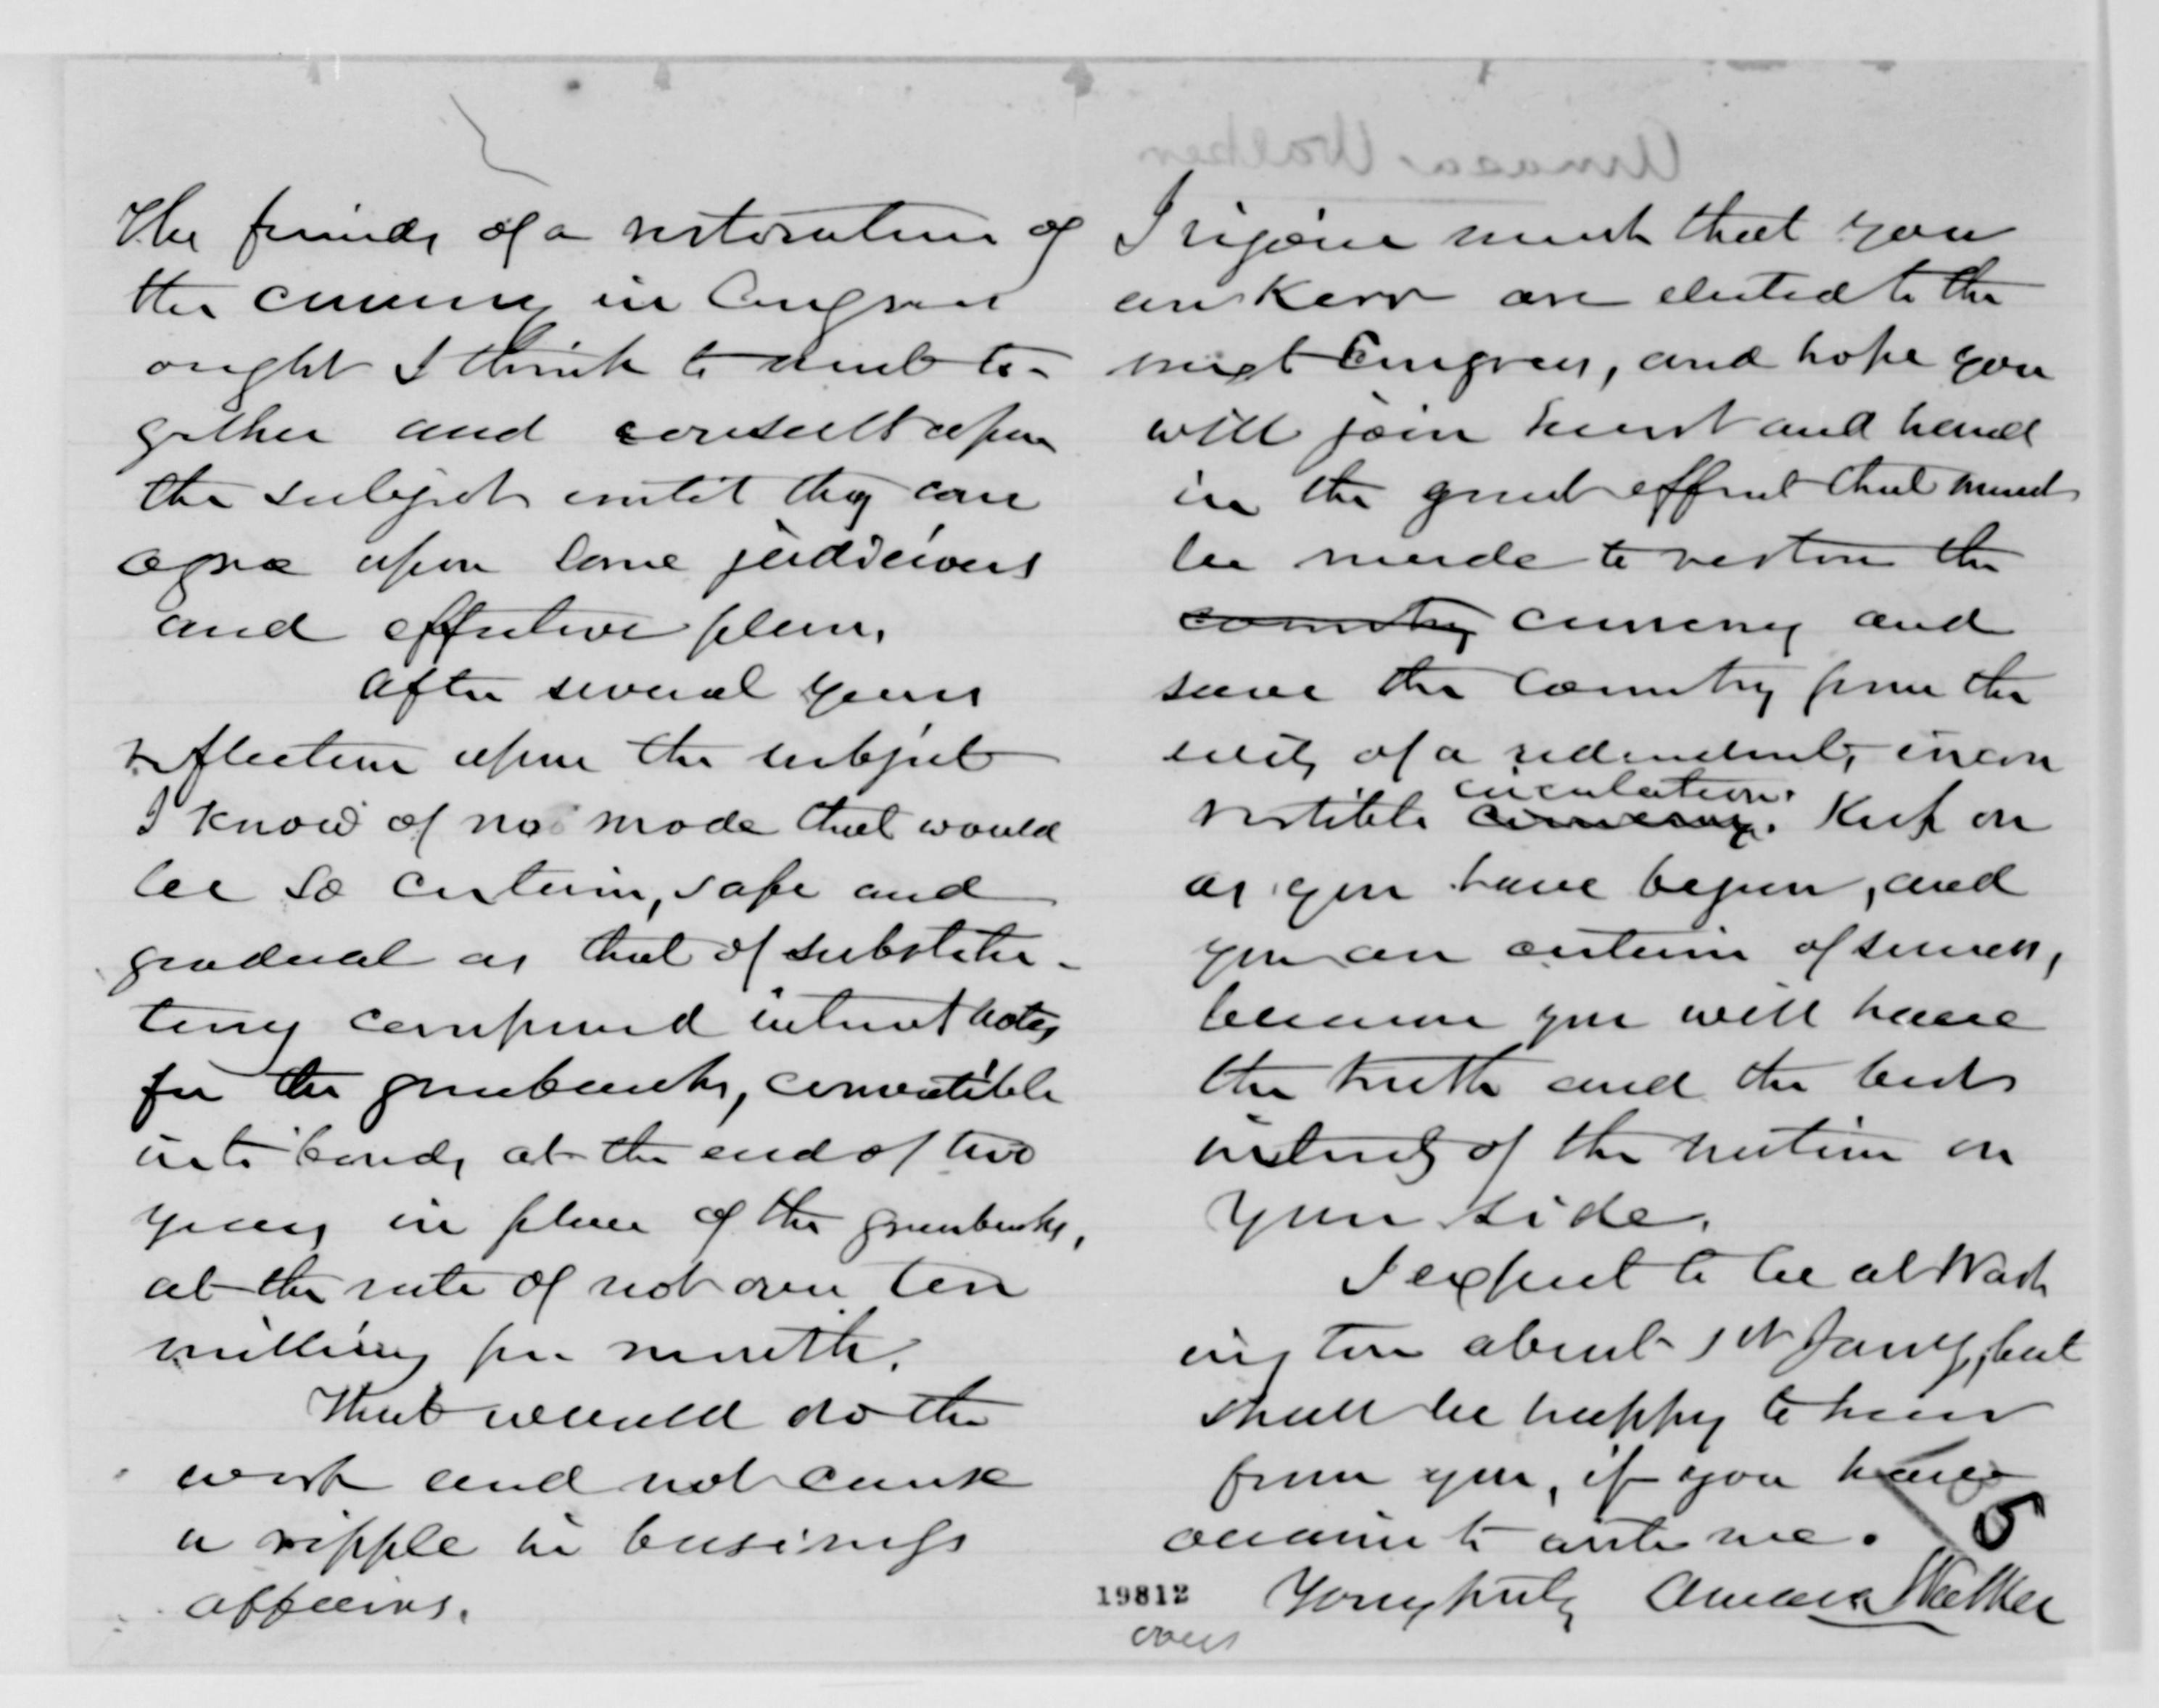 The friends of a restoration of
the currency in Congress
ought I think to meet to-
gether and consult upon
the subject until they can
agree upon some judicious
and effective plan.
After several years
reflection upon the subject
I know of no mode that would
be so certain, safe and
gradual as that of substitu-
ting compound interest notes
for the greenbacks, convertible
into bonds, at the end of two
years, in place of the greenbacks,
at the rate of not over ten
millions per month.
That would do the
work and not cause
a ripple in business
affairs.
Amasa Walker
I rejoice much that you
and Kerr are elected to the
next Congress, and hope you
will join heart and hand
in the great effort that must
be made to restore the
country currency and
save the country from the
evils of a redundant, incon
vertible currency. circulation. Keep on
as you have begun, and
you are certain of success,
because you will have
the truth and the best
interests of the nation on
your side.
I expect to be at Wash
ington about 1st Jany, but
shall be happy to hear
from you, if you have
occasion to write me.
5
19812 Yours truly Amasa Walker
over